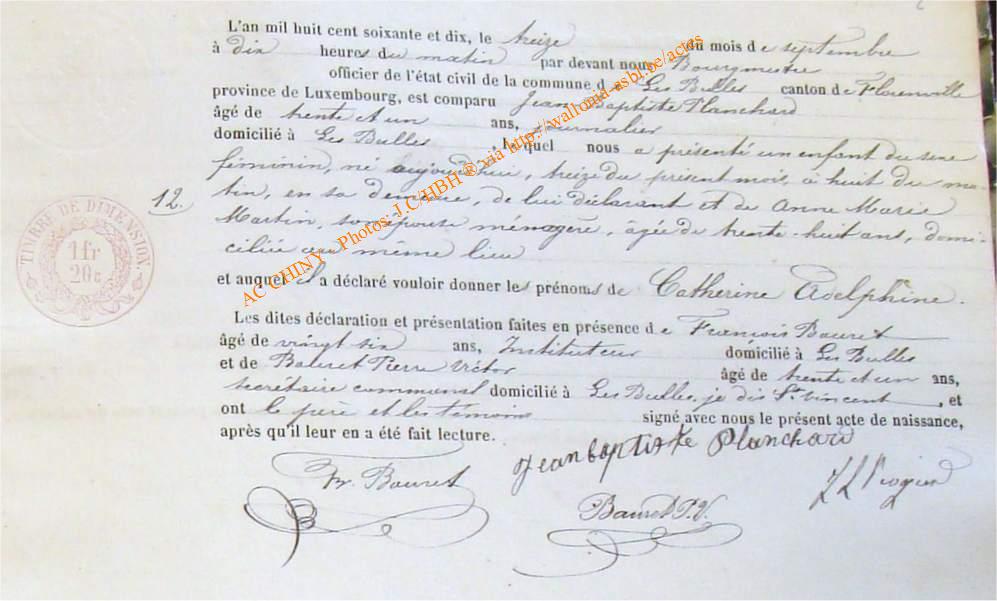 L'an mil huit cent soixante et dix, le treize du mois de septembre
à dix heures du matin par devant nous Bourgmestre
officier de l'état civil de la commune de Les Bulles canton de Florenville
province de Luxembourg, est comparu Jean Baptiste Planchard
âgé de trente et un ans, journalier
domicilié à Les Bulles, lequel nous a présenté un enfant du sexe
féminin, né aujourd'hui, treize du présent mois, à huit du ma-
12. tin, en sa demeure, de lui déclarant et de Anne Marie
Martin, son épouse ménagère, âgée de trente-huit ans, domi-
ciliée au même lieu
et auquel il a déclaré vouloir donner les prénoms de Catherine Adelphine.
Les dites déclaration et présentation faites en présence de François Bauret
âgé de vingt six ans, Instituteur domicilié à Les Bulles
et de Bauret Pierre Victor âgé de trente et un ans,
secrétaire communal domicilié à Les Bulles, je dis St Vincent, et
ont le père et les témoins signé avec nous le présent acte de naissance,
après qu'il leur en a été fait lecture.
Jean baptiste Planchard
Fr. Bauret
Bauret P.V.
TIMBRE DE DIMENSION.
1 fr
20 c
AC CHINY - Photos: J.C/HBH ® via http://wallonia-asbl.be/actes